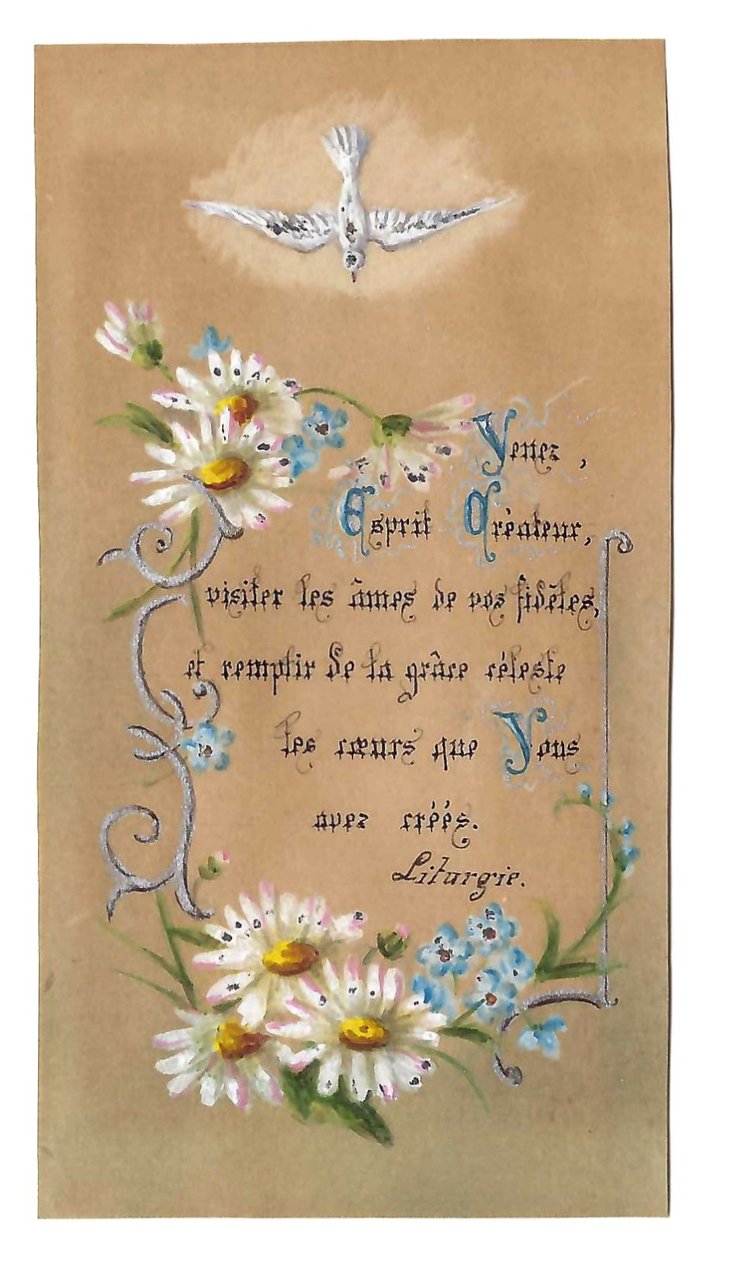 Venez,
Esprit Créateur,
visiter les âmes de vos fidèles,
et remplir de la grâce céleste
les cœurs que Vous
avez créés.
Liturgie.